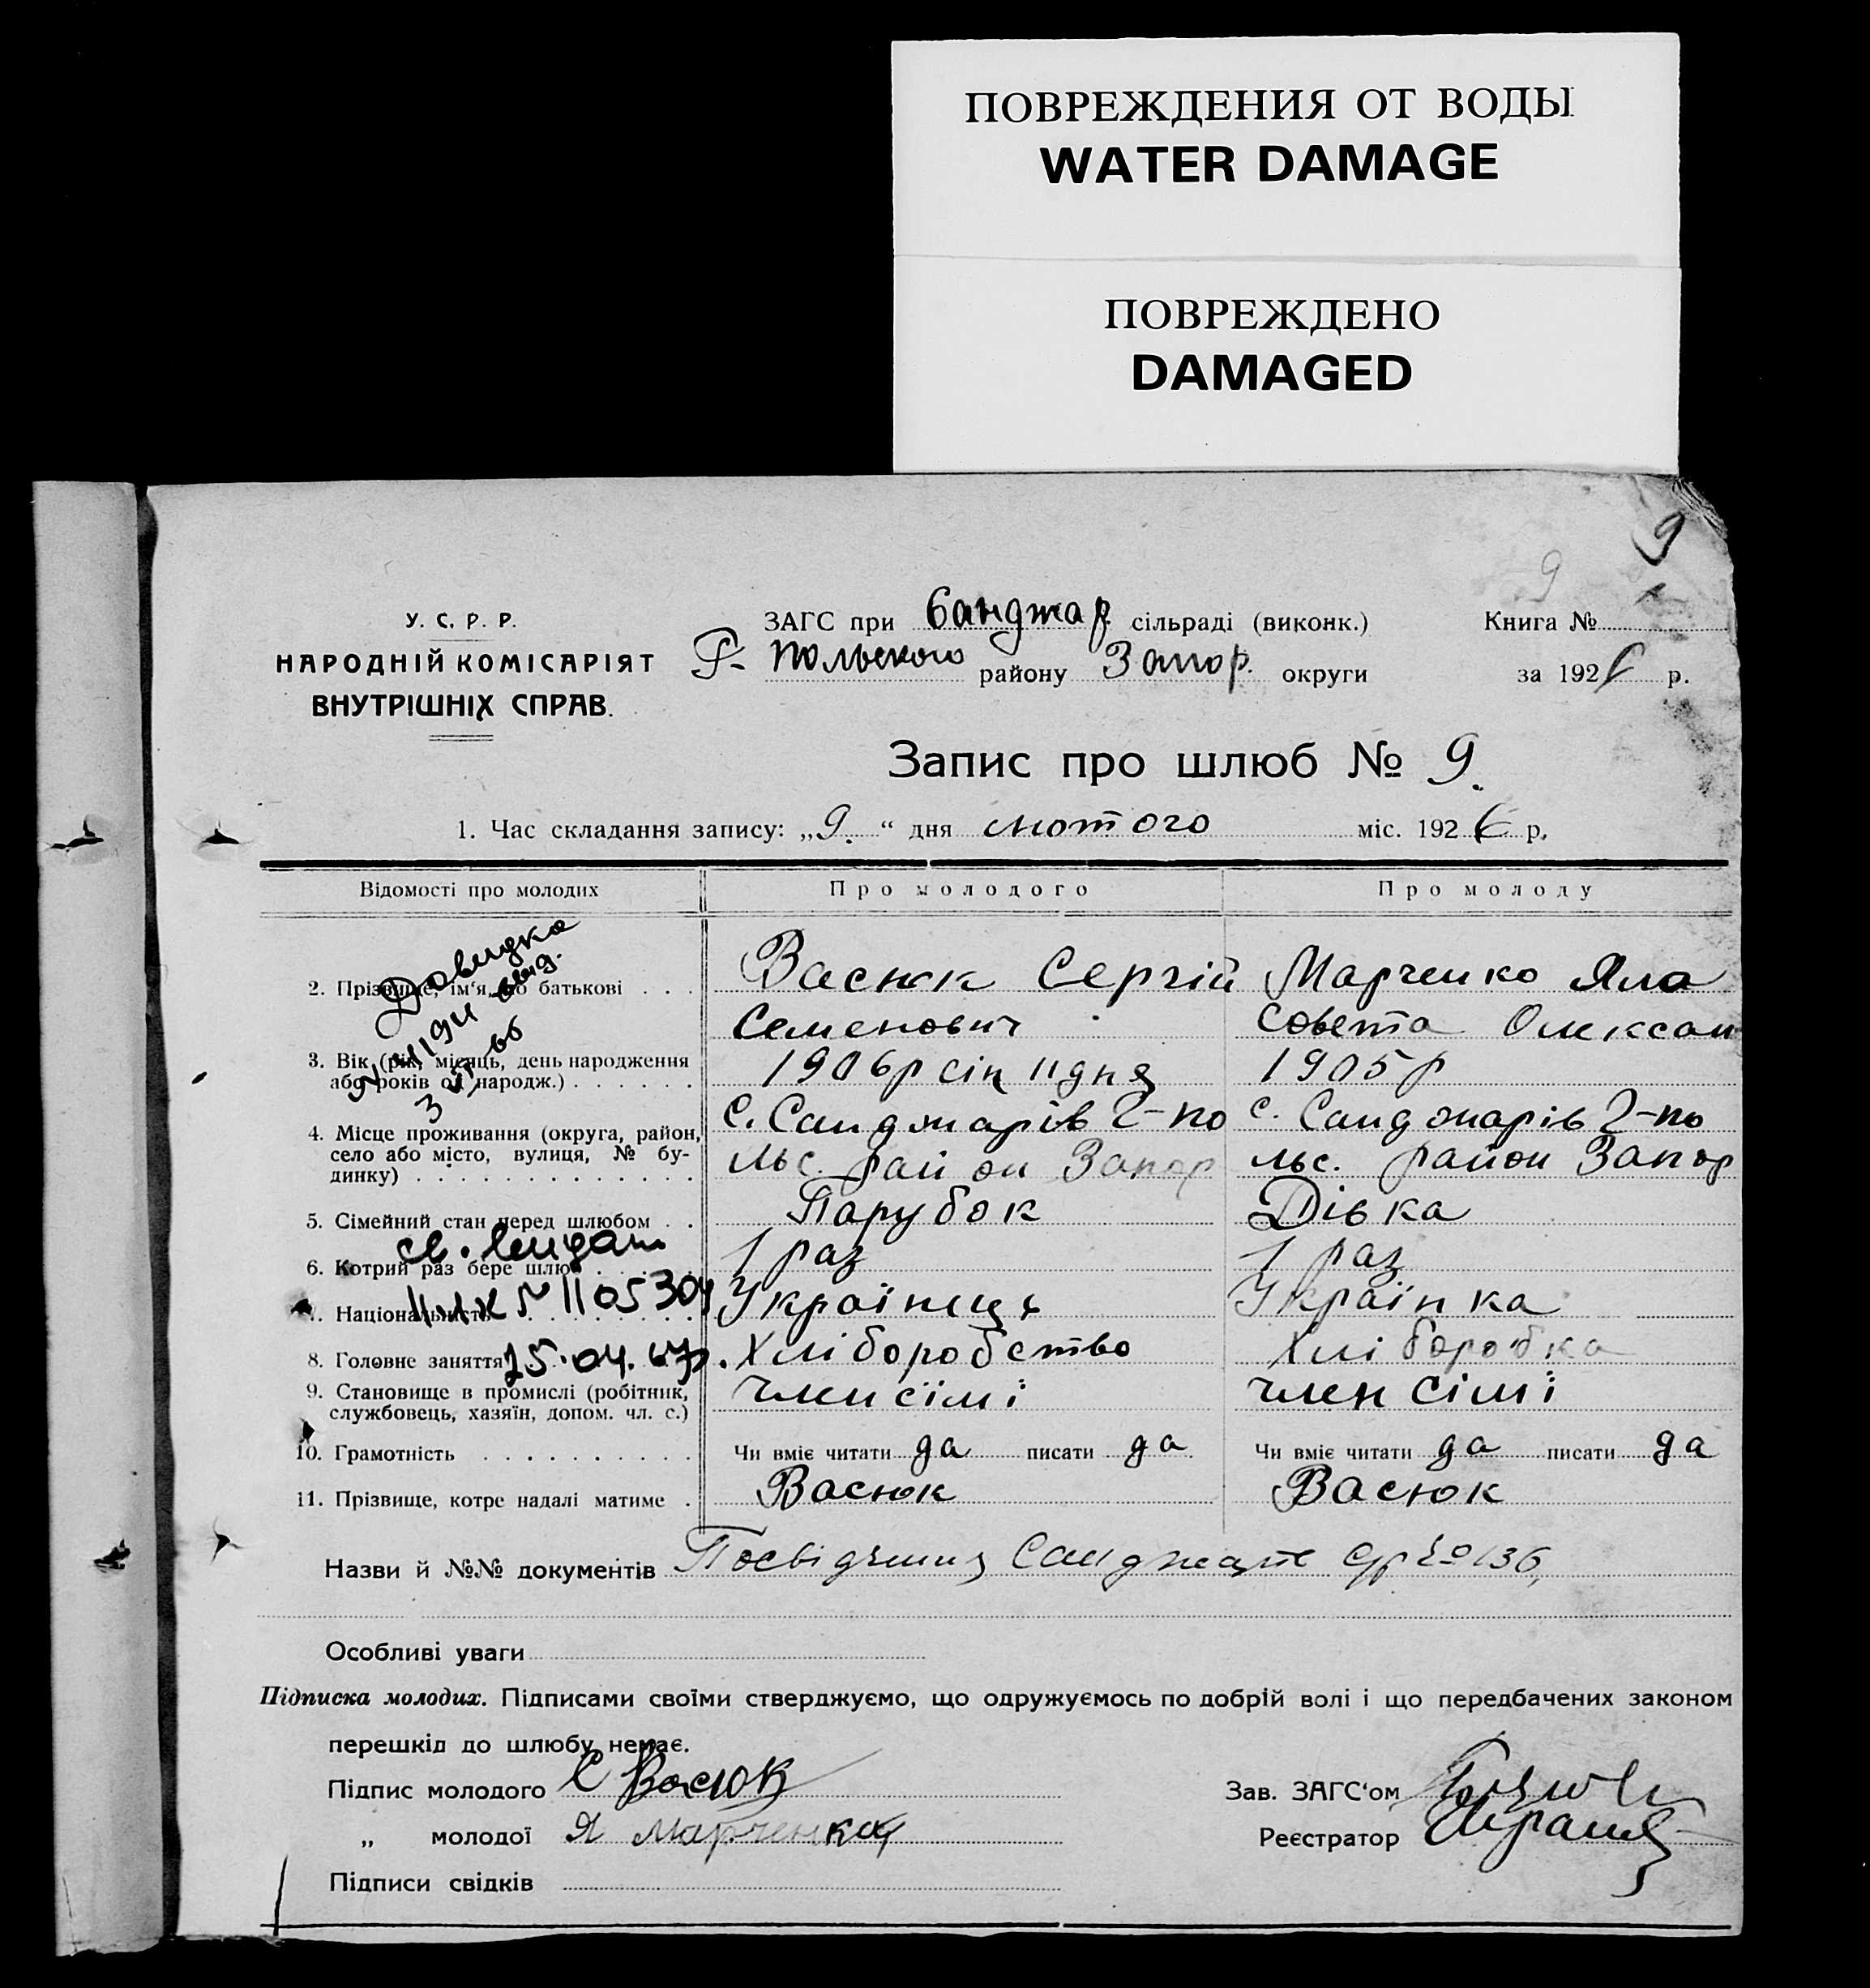 ПОВРЕЖДЕНИЯ ОТ ВОДЫ
WATER DAMAGE
ПОВРЕЖДЕНО
DAMAGED
9
9
У. С. Р. Р.
НАРОДНІЙ КОМІСАРІЯТ
ВНУТРІШНІХ СПРАВ.
ЗАГС при Санджар. сільраді (виконк.)
Г- Польського району Запор. округи
Книга №
за 1926 р.
Запис про шлюб № 9.
1. Час складання запису: „9.“ дня лютого міс. 1926 р.
Відомості про молодих Про молодого Про молоду
2. Прізвище, ім‘я, по батькові . . . Васюк Сергій Марченко Яла
Семенович Совета Олексан
3. Вік (рік, місяць, день народження 1906р січ 11 дня 1905р
або років од народж.) . . . . . .
4. Місце проживання (округа, район, с. Санджарів Г-по с. Санджарів Г-по
село або місто, вулиця, № бу- льс. район Запор льс. район Запор
динку) . . . . . . . . . . . . .
5. Сімейний стан перед шлюбом . . Парубок Дівка
6. Котрий раз бере шлюб . . . . . 1 раз 1 раз
7. Національність . . . . . . . . Українець Українка
8. Головне заняття Хліборобство Хліборобка
9. Становище в промислі (робітник, член сімї член сімї
службовець, хазяїн, допом. чл. с.)
10. Грамотність . . . . . . . . . . Чи вміє читати да писати да Чи вміє читати да писати да
11. Прізвище, котре надалі матиме . Васюк Васюк
Довидка
3 66
св. видан
№ 1105304
25.04.67р.
Назви й №№ документів Посвідчення Санджар № 136,
Особливі уваги
Підписка молодих. Підписами своїми стверджуємо, що одружуємось по добрій волі і що передбачених законом
перешкід до шлюбу немає.
Підпис молодого С Васюк
„ молодої Я Марченко
Підписи свідків
Зав. ЗАГС‘ом
Реєстратор